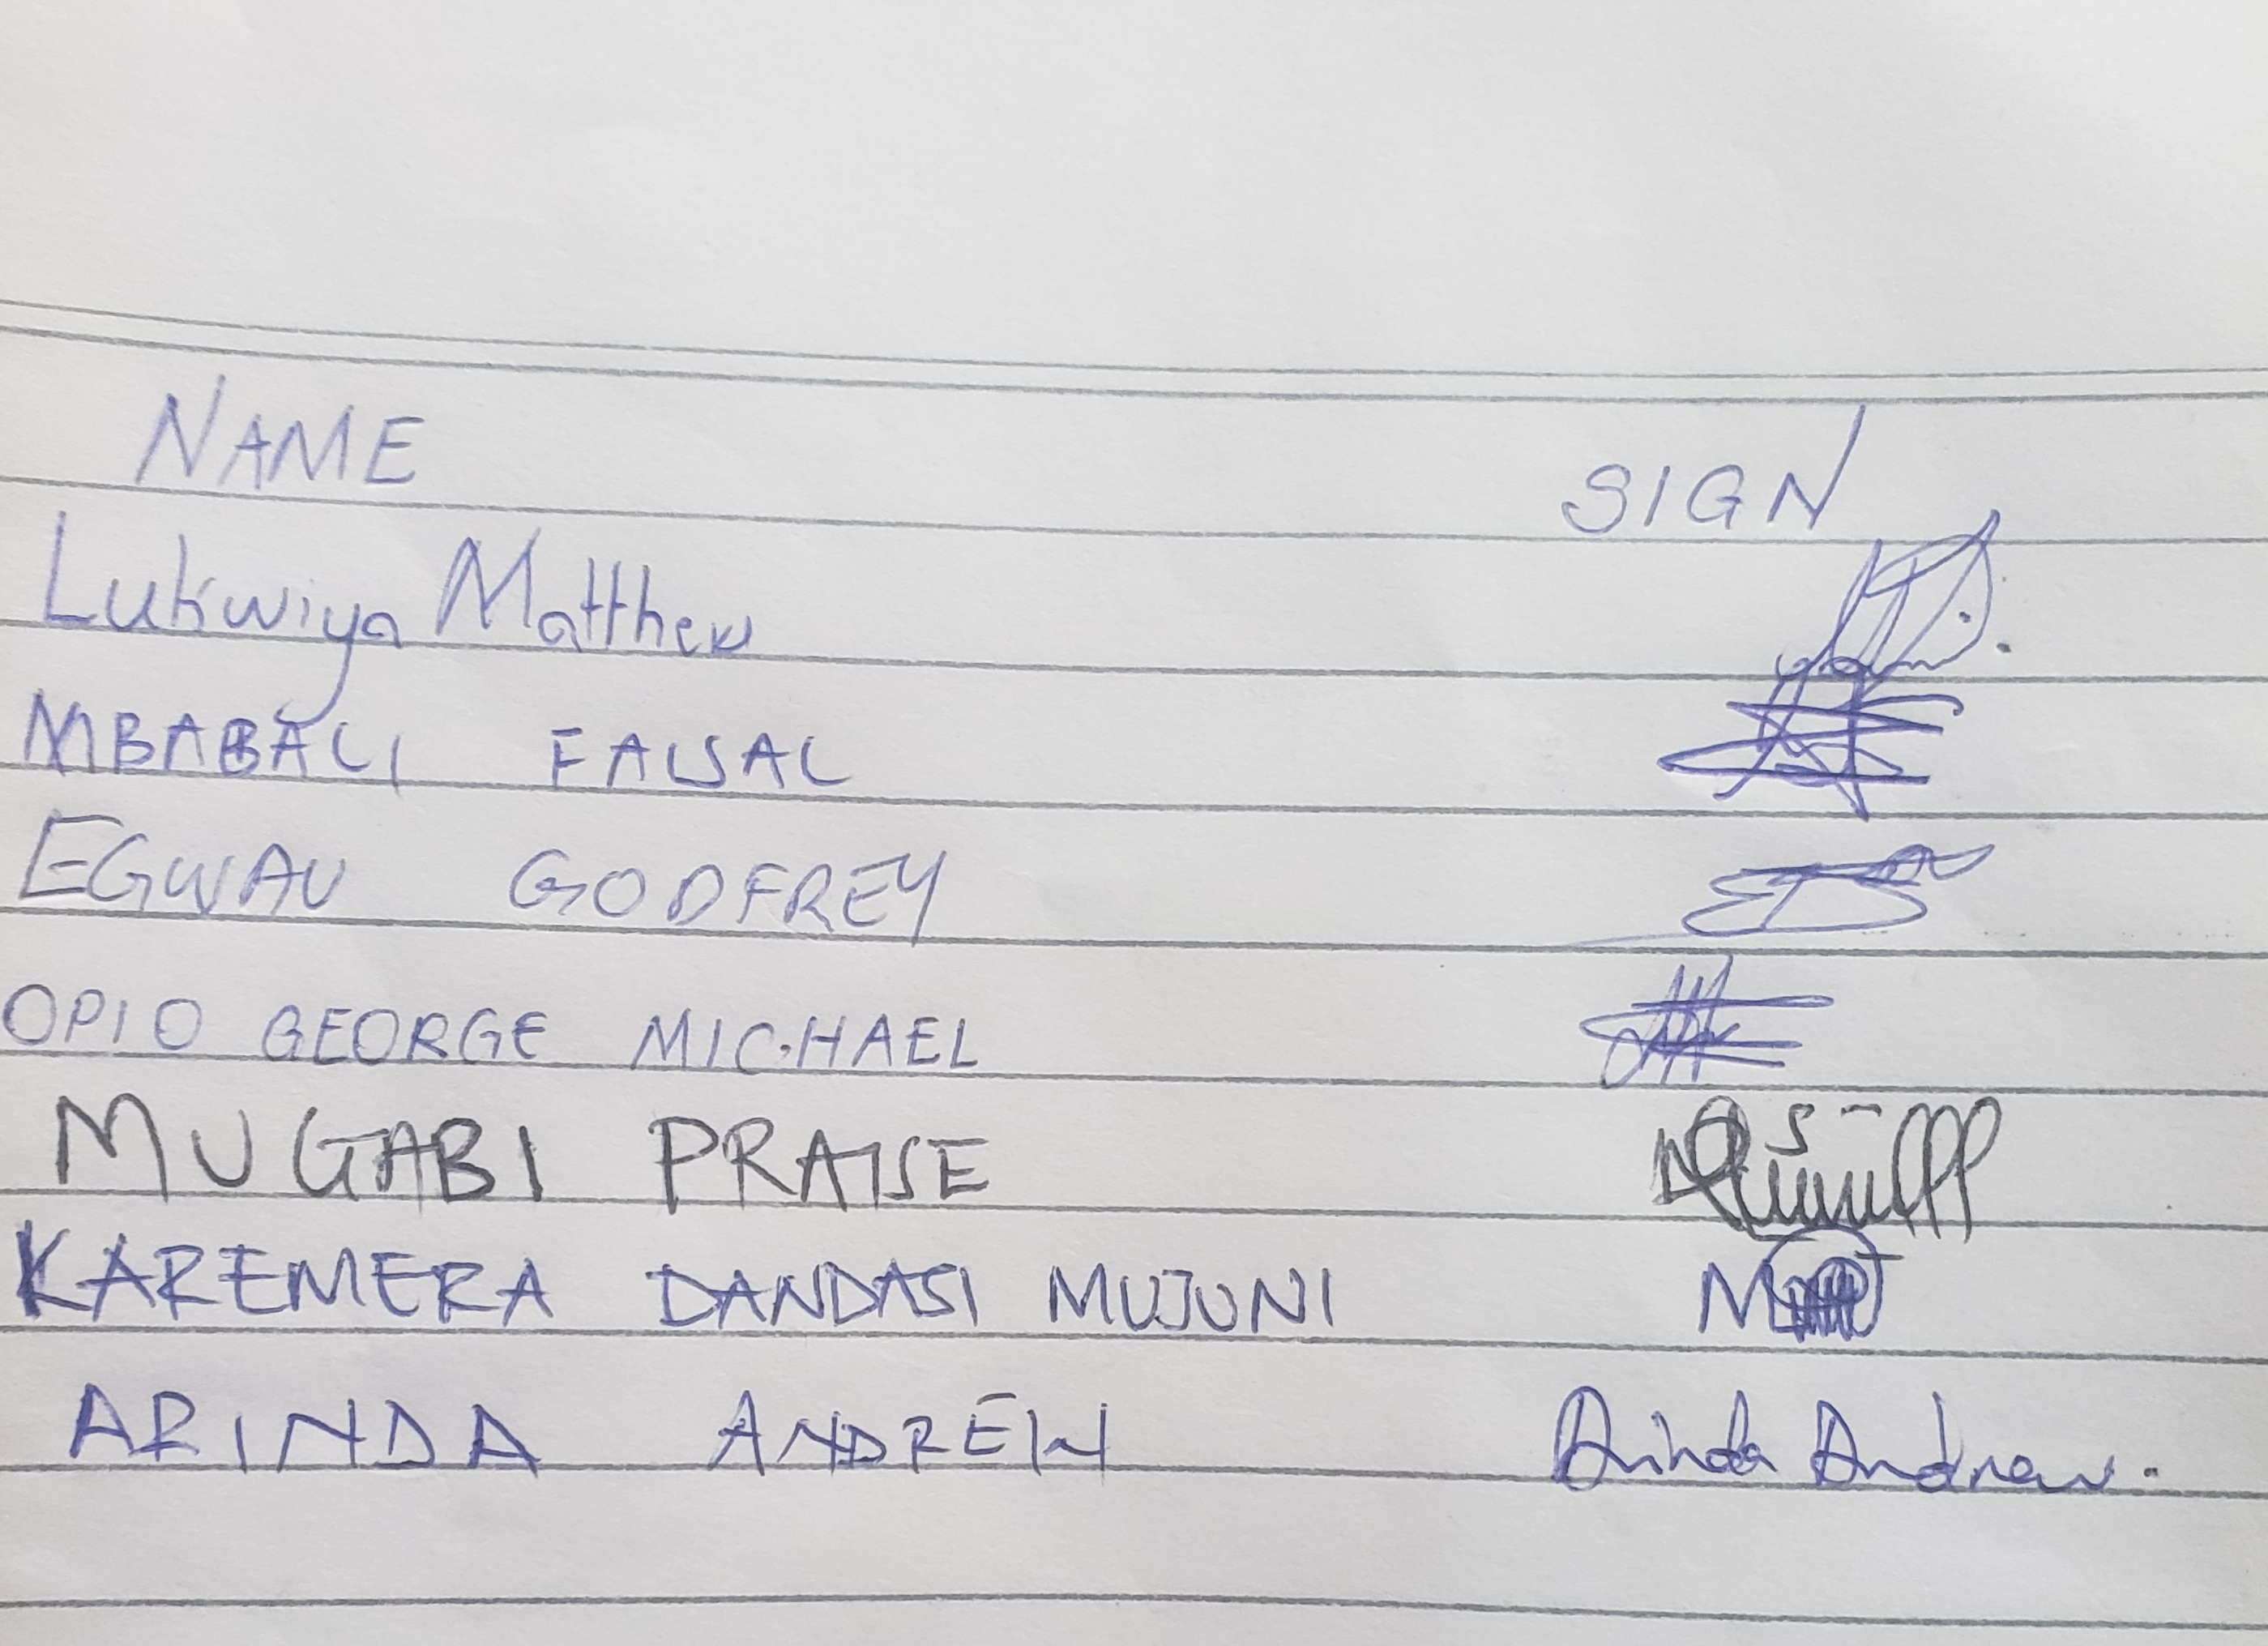 NAME SIGN
Lukwiya Matthew
MBABALI FAISAL
EGWAU GODFREY
OPIO GEORGE MICHAEL
MUGABI PRAISE
KAREMERA DANDASI MUJUNI
ARINDA ANDREW Arinda Andrew.